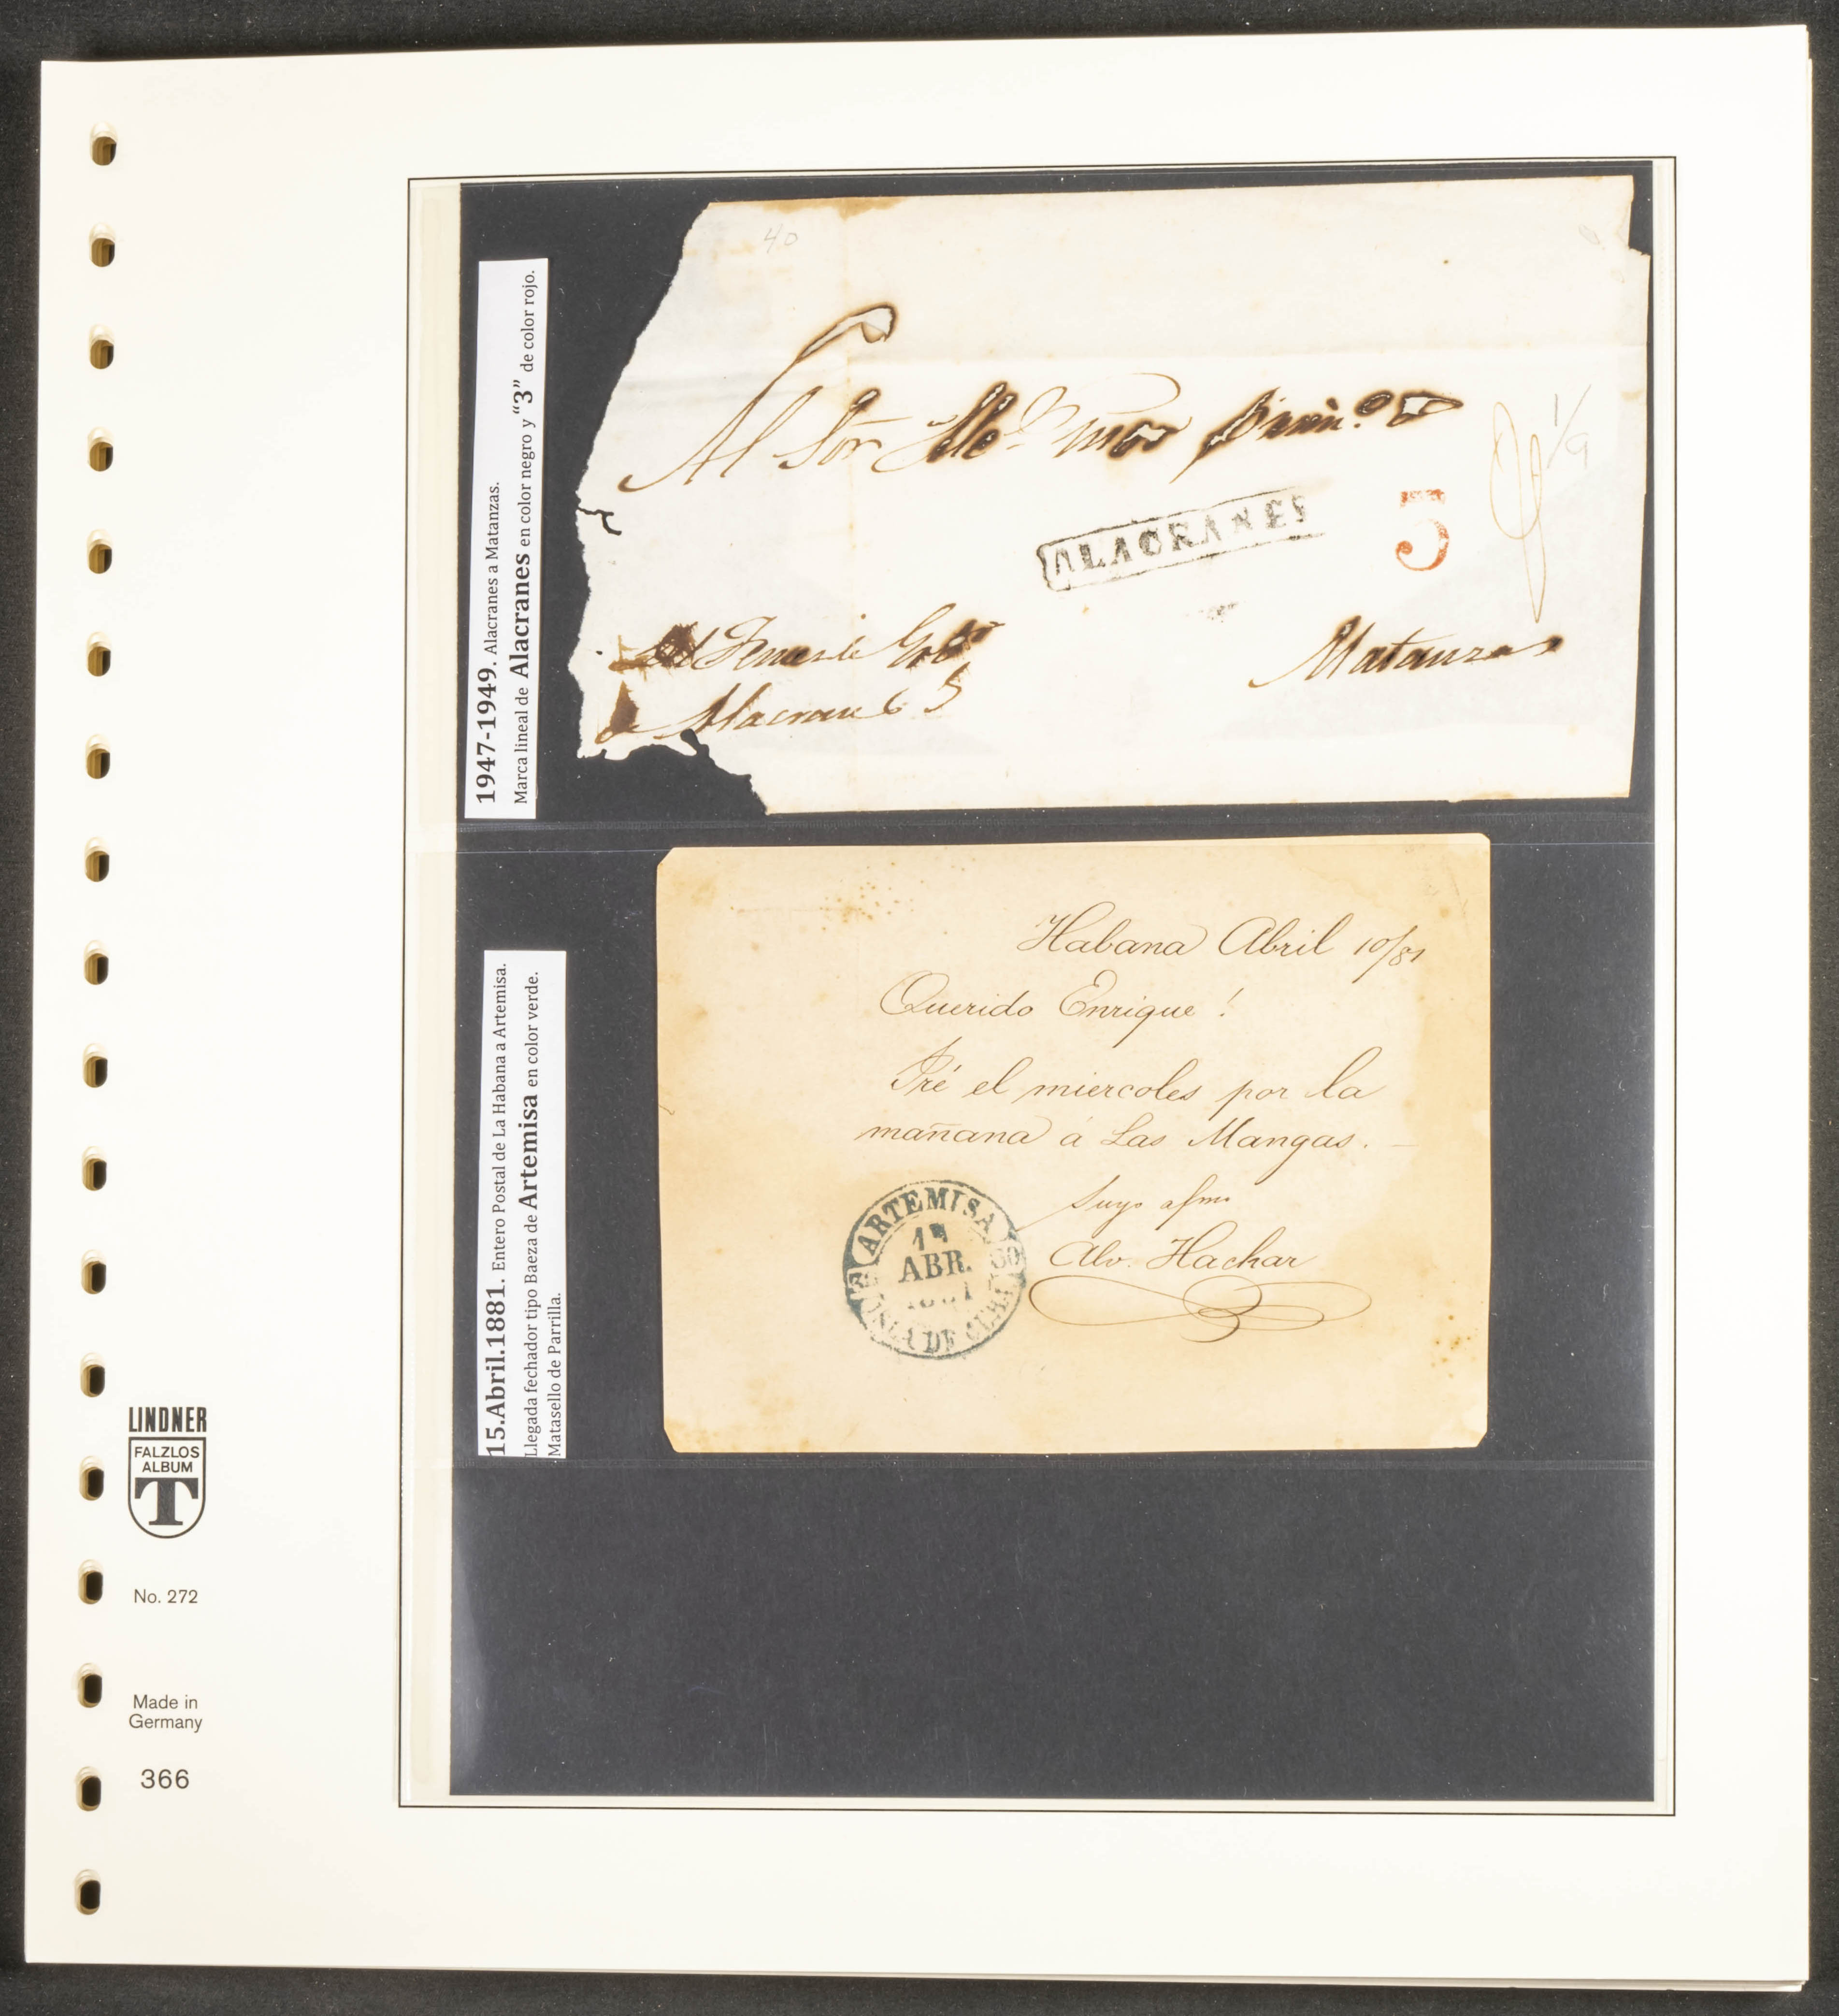 1947-1949. Alacranes a Matanzas.
Marca lineal de Alacranes en color negro y “3” de color rojo.
40
Al Sor
1/9
ALACRANES
3
Matanzas
15.Abril.1881. Entero Postal de La Habana a Artemisa.
Llegada fechador tipo Baeza de Artemisa en color verde.
Matasello de Parrilla.
Habana Abril 10/81
Querido Enrique!
Iré el miercoles por la
mañana á Las Mangas.
Suyo afmo
Alv. Hachar
ARTEMISA
ABR.
ISLA DE CUBA
LINDNER
FALZLOS
ALBUM
T
No. 272
Made in
Germany
366